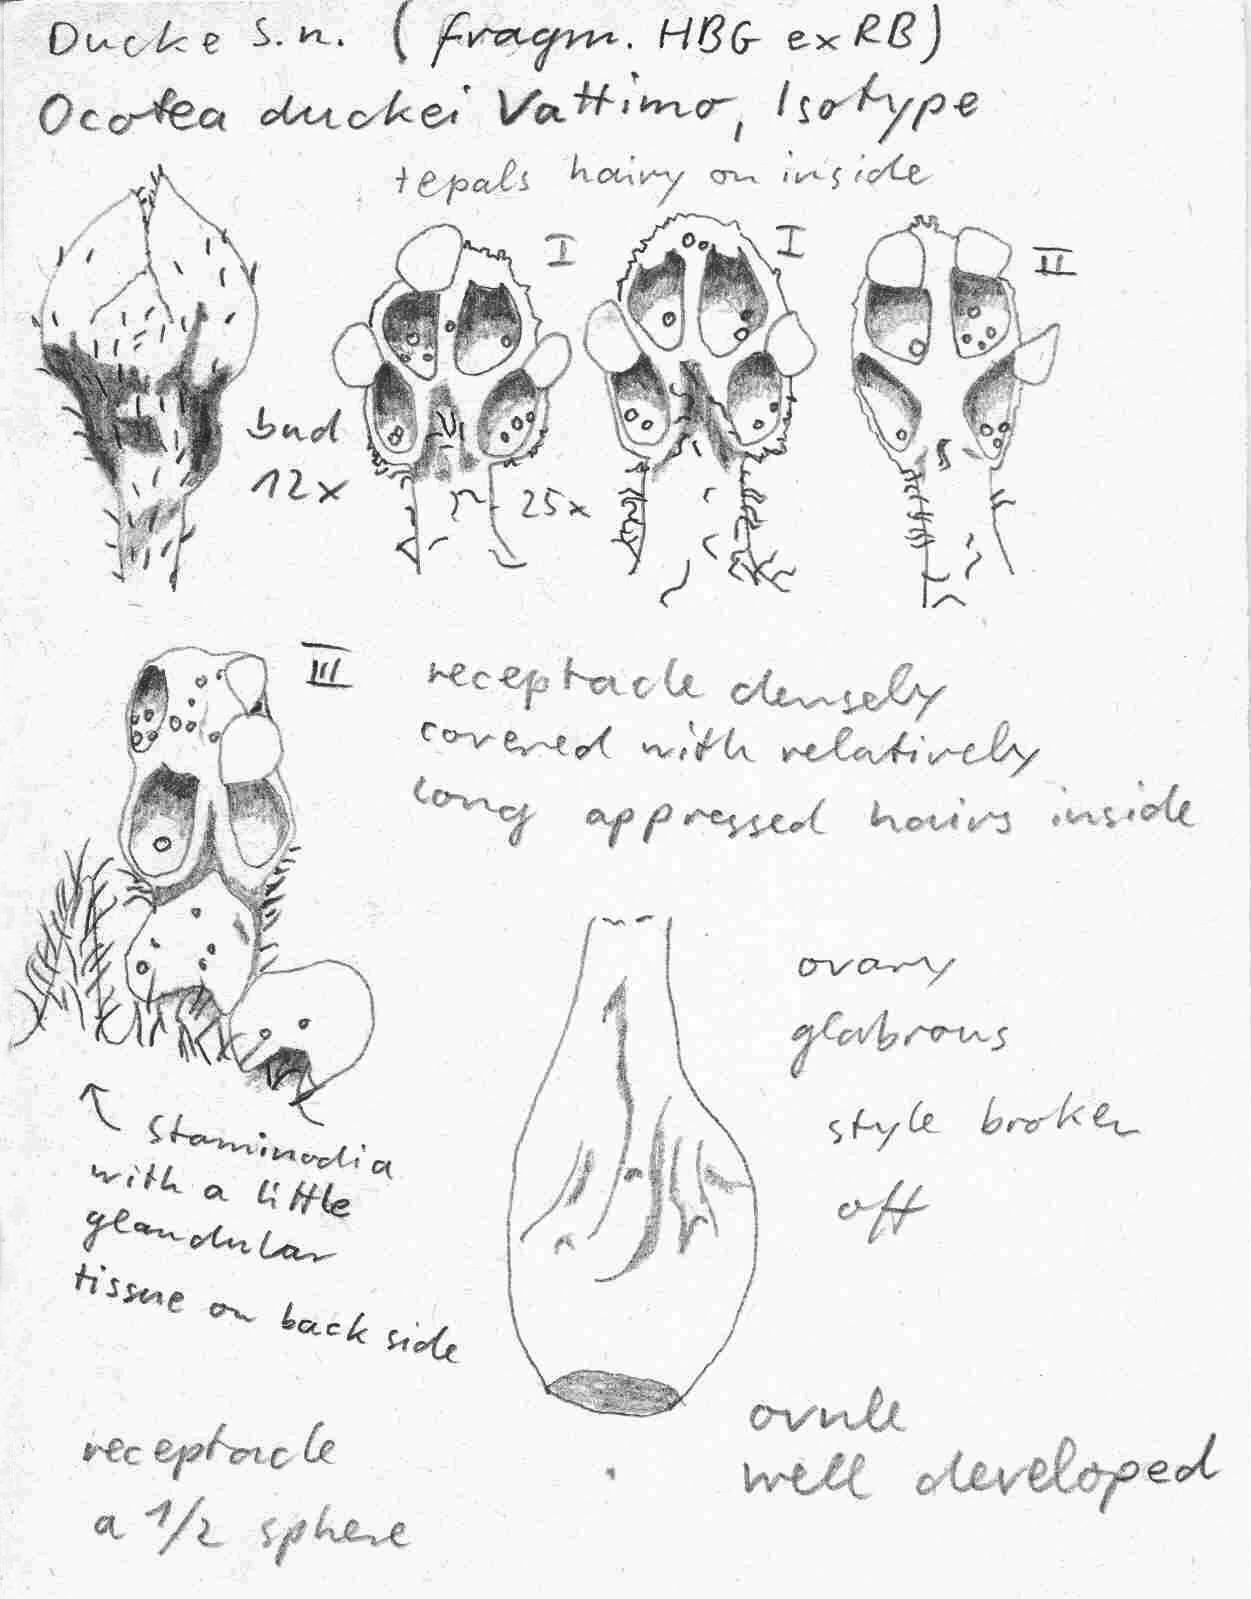 Ducke s.n. (fragm. HBG ex RB)
Ocotea duckei Vattimo, Isotype
tepals hairy on inside
I
I
II
bud
12x
25x
III
receptacle densely
covered with relatively
long appressed hairs inside
ovary
glabrous
style broken
off
staminodia
with a little
glandular
tissue on back side
ovule
well developed
receptacle
a 1/2 sphere